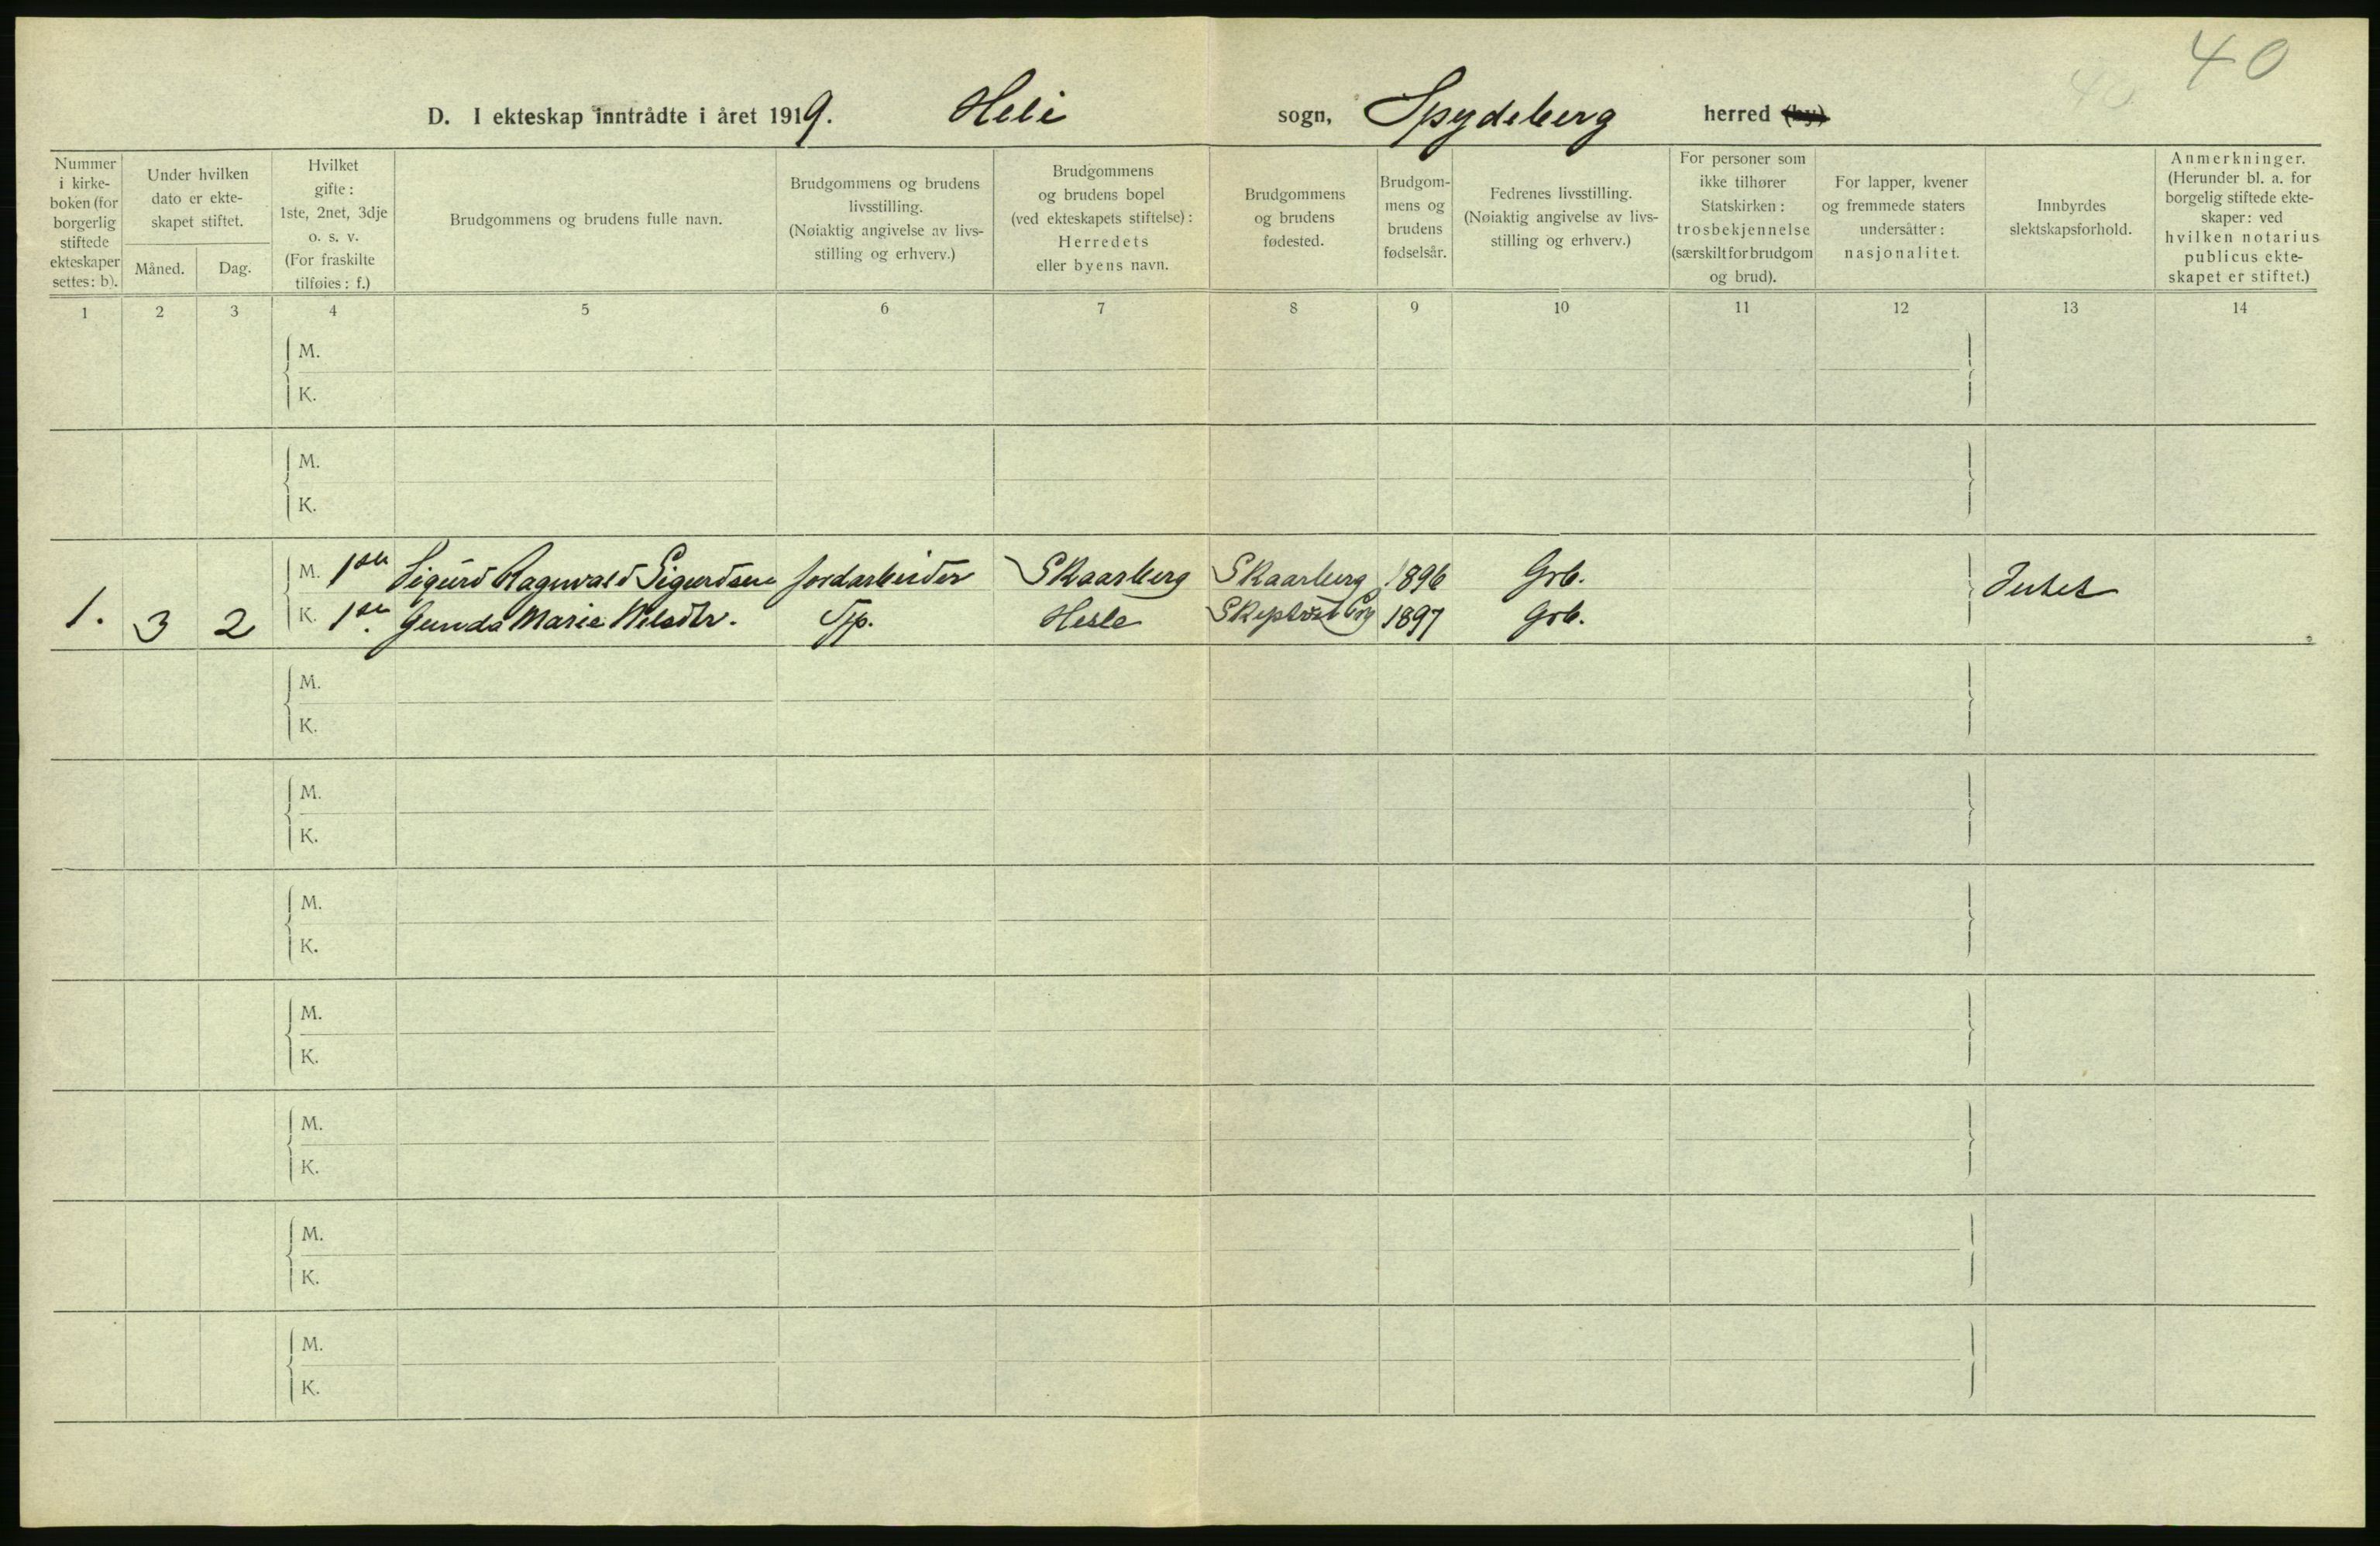 40
40
D. I ekteskap inntrådte i året 1919. Heli sogn, Spydeberg herred (by)
Nummer i kirkeboken (for borgerlig stiftede ekteskaper settes: b).
Under hvilken dato er ekteskapet stiftet.
Måned. Dag.
Hvilket gifte: 1ste, 2net, 3dje o. s. v. (For fraskilte tilføies: f.)
Brudgommens og brudens fulle navn.
Brudgommens og brudens livsstilling. (Nøiaktig angivelse av livsstilling og erhverv.)
Brudgommens og brudens bopel (ved ekteskapets stiftelse): Herredets eller byens navn.
Brudgommens og brudens fødested.
Brudgommens og brudens fødselsår.
Fedrenes livsstilling. (Nøiaktig angivelse av livsstilling og erhverv.)
For personer som ikke tilhører Statskirken: trosbekjennelse (særskilt for brudgom og brud).
For lapper, kvener og fremmede staters undersåtter: nasjonalitet.
Innbyrdes slektskapsforhold.
Anmerkninger. (Herunder bl. a. for borgelig stiftede ekteskaper: ved hvilken notarius publicus ekteskapet er stiftet.)
1 2 3 4 5 6 7 8 9 10 11 12 13 14
M.
K.
M.
K.
M. 1ste Sigurd Ragnvald Sigurdsen Jordarbeider Skaarberg Skaarberg 1896 Grb. Intet
1. 3 2 K. 1ste Gunda Marie Nilsdtr. Tjp. Hesle 1897 Grb.
M.
K.
M.
K.
M.
K.
M.
K.
M.
K.
M.
K.
M.
K.